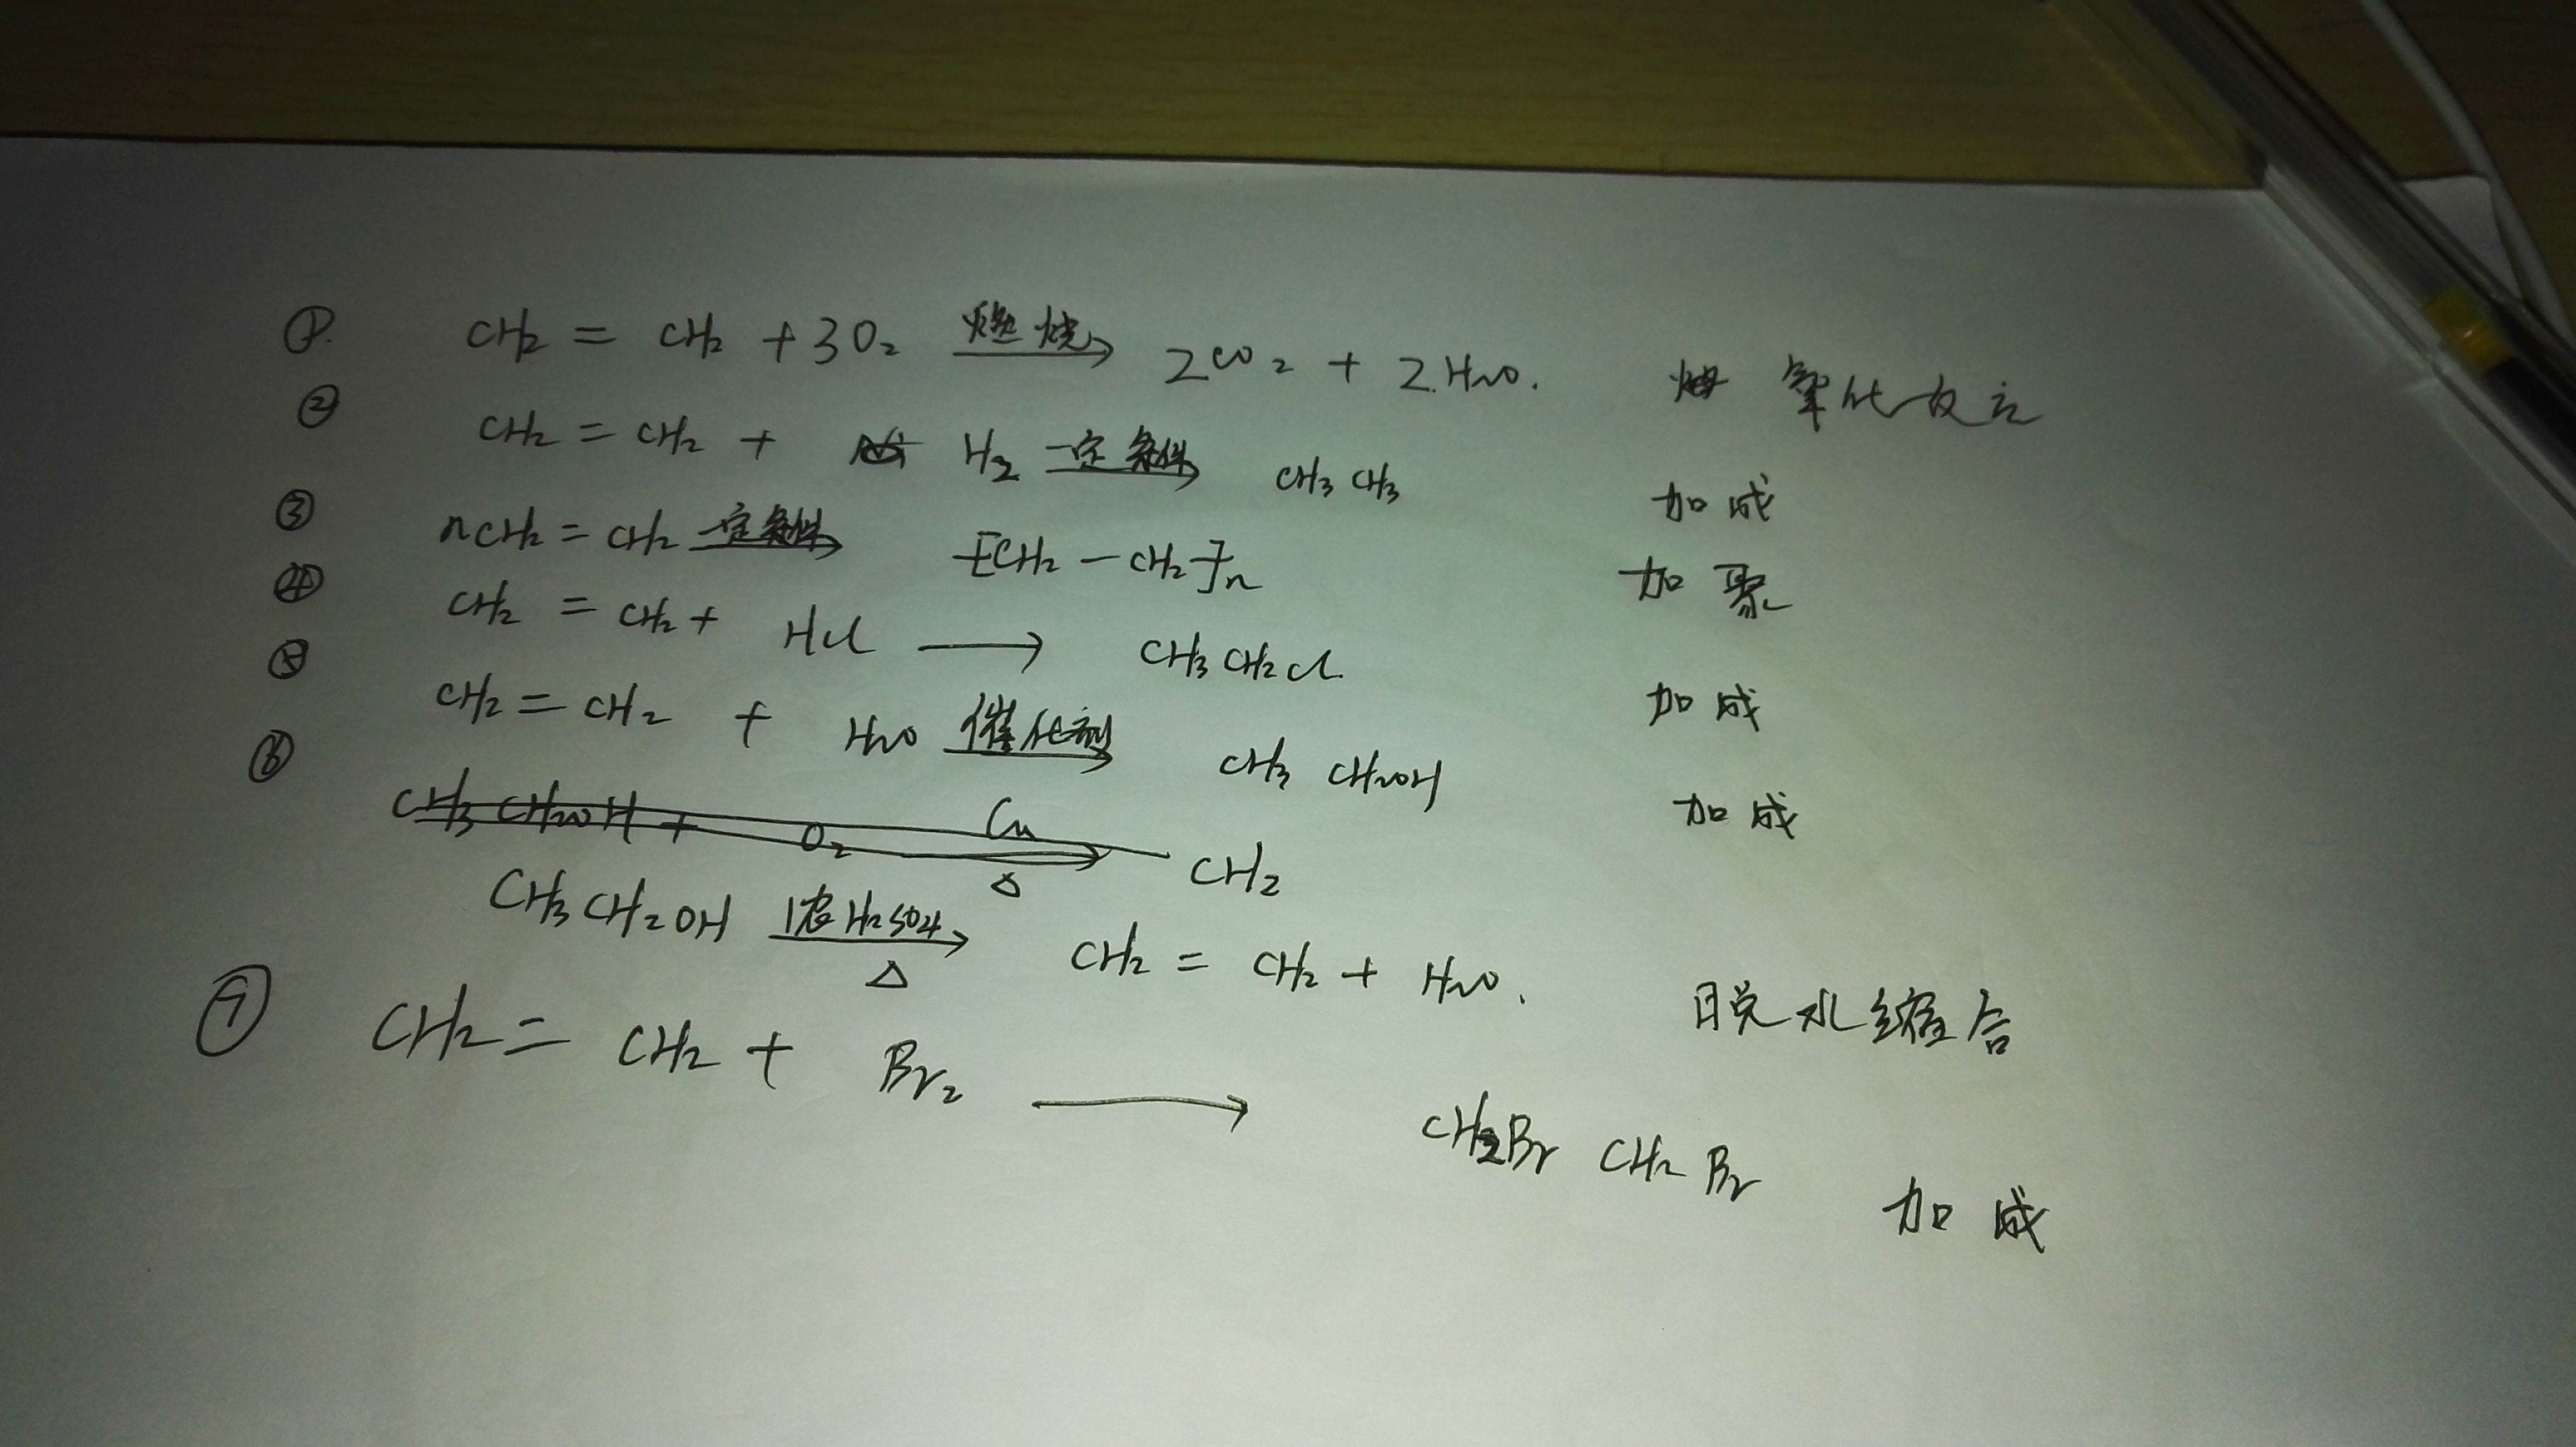 ① CH₂ = CH₂ + 3O₂ 燃烧→ 2CO₂ + 2H₂O. 氧化反应
② CH₂ = CH₂ + H₂ 一定条件→ CH₃CH₃ 加成
③ nCH₂ = CH₂ 一定条件→ -[CH₂-CH₂]-n 加聚
④ CH₂ = CH₂ + HCl → CH₃CH₂Cl 加成
⑤ CH₂ = CH₂ + H₂O 催化剂→ CH₃CH₂OH 加成
⑥ CH₃CH₂OH + O₂ Cu→Δ CH₂
CH₃CH₂OH 浓H₂SO₄→Δ CH₂ = CH₂ + H₂O. 脱水缩合
⑦ CH₂ = CH₂ + Br₂ → CH₂Br CH₂Br 加成